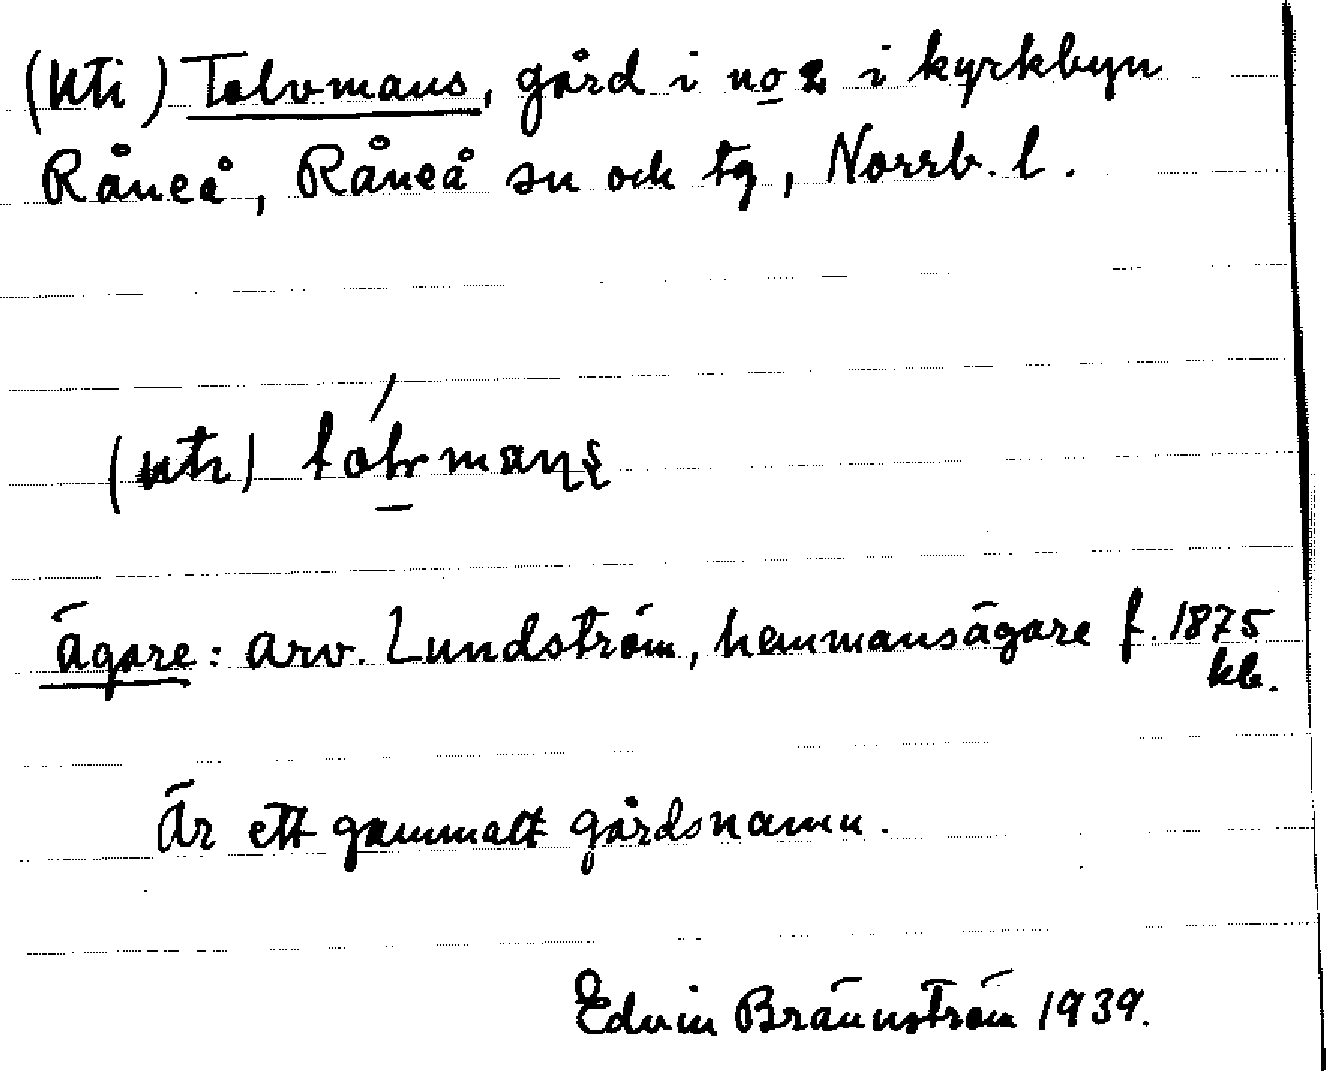 (uti) Tolvmans, gård i no 2 i kyrkbyn
Råneå, Råneå sn och tg, Norrb. l.
(uti)
Ägare: Arv. Lundström, hemmansägare f. 1875
kb.
Är ett gammalt gårdsnamn.
Edvin Brännström 1939.